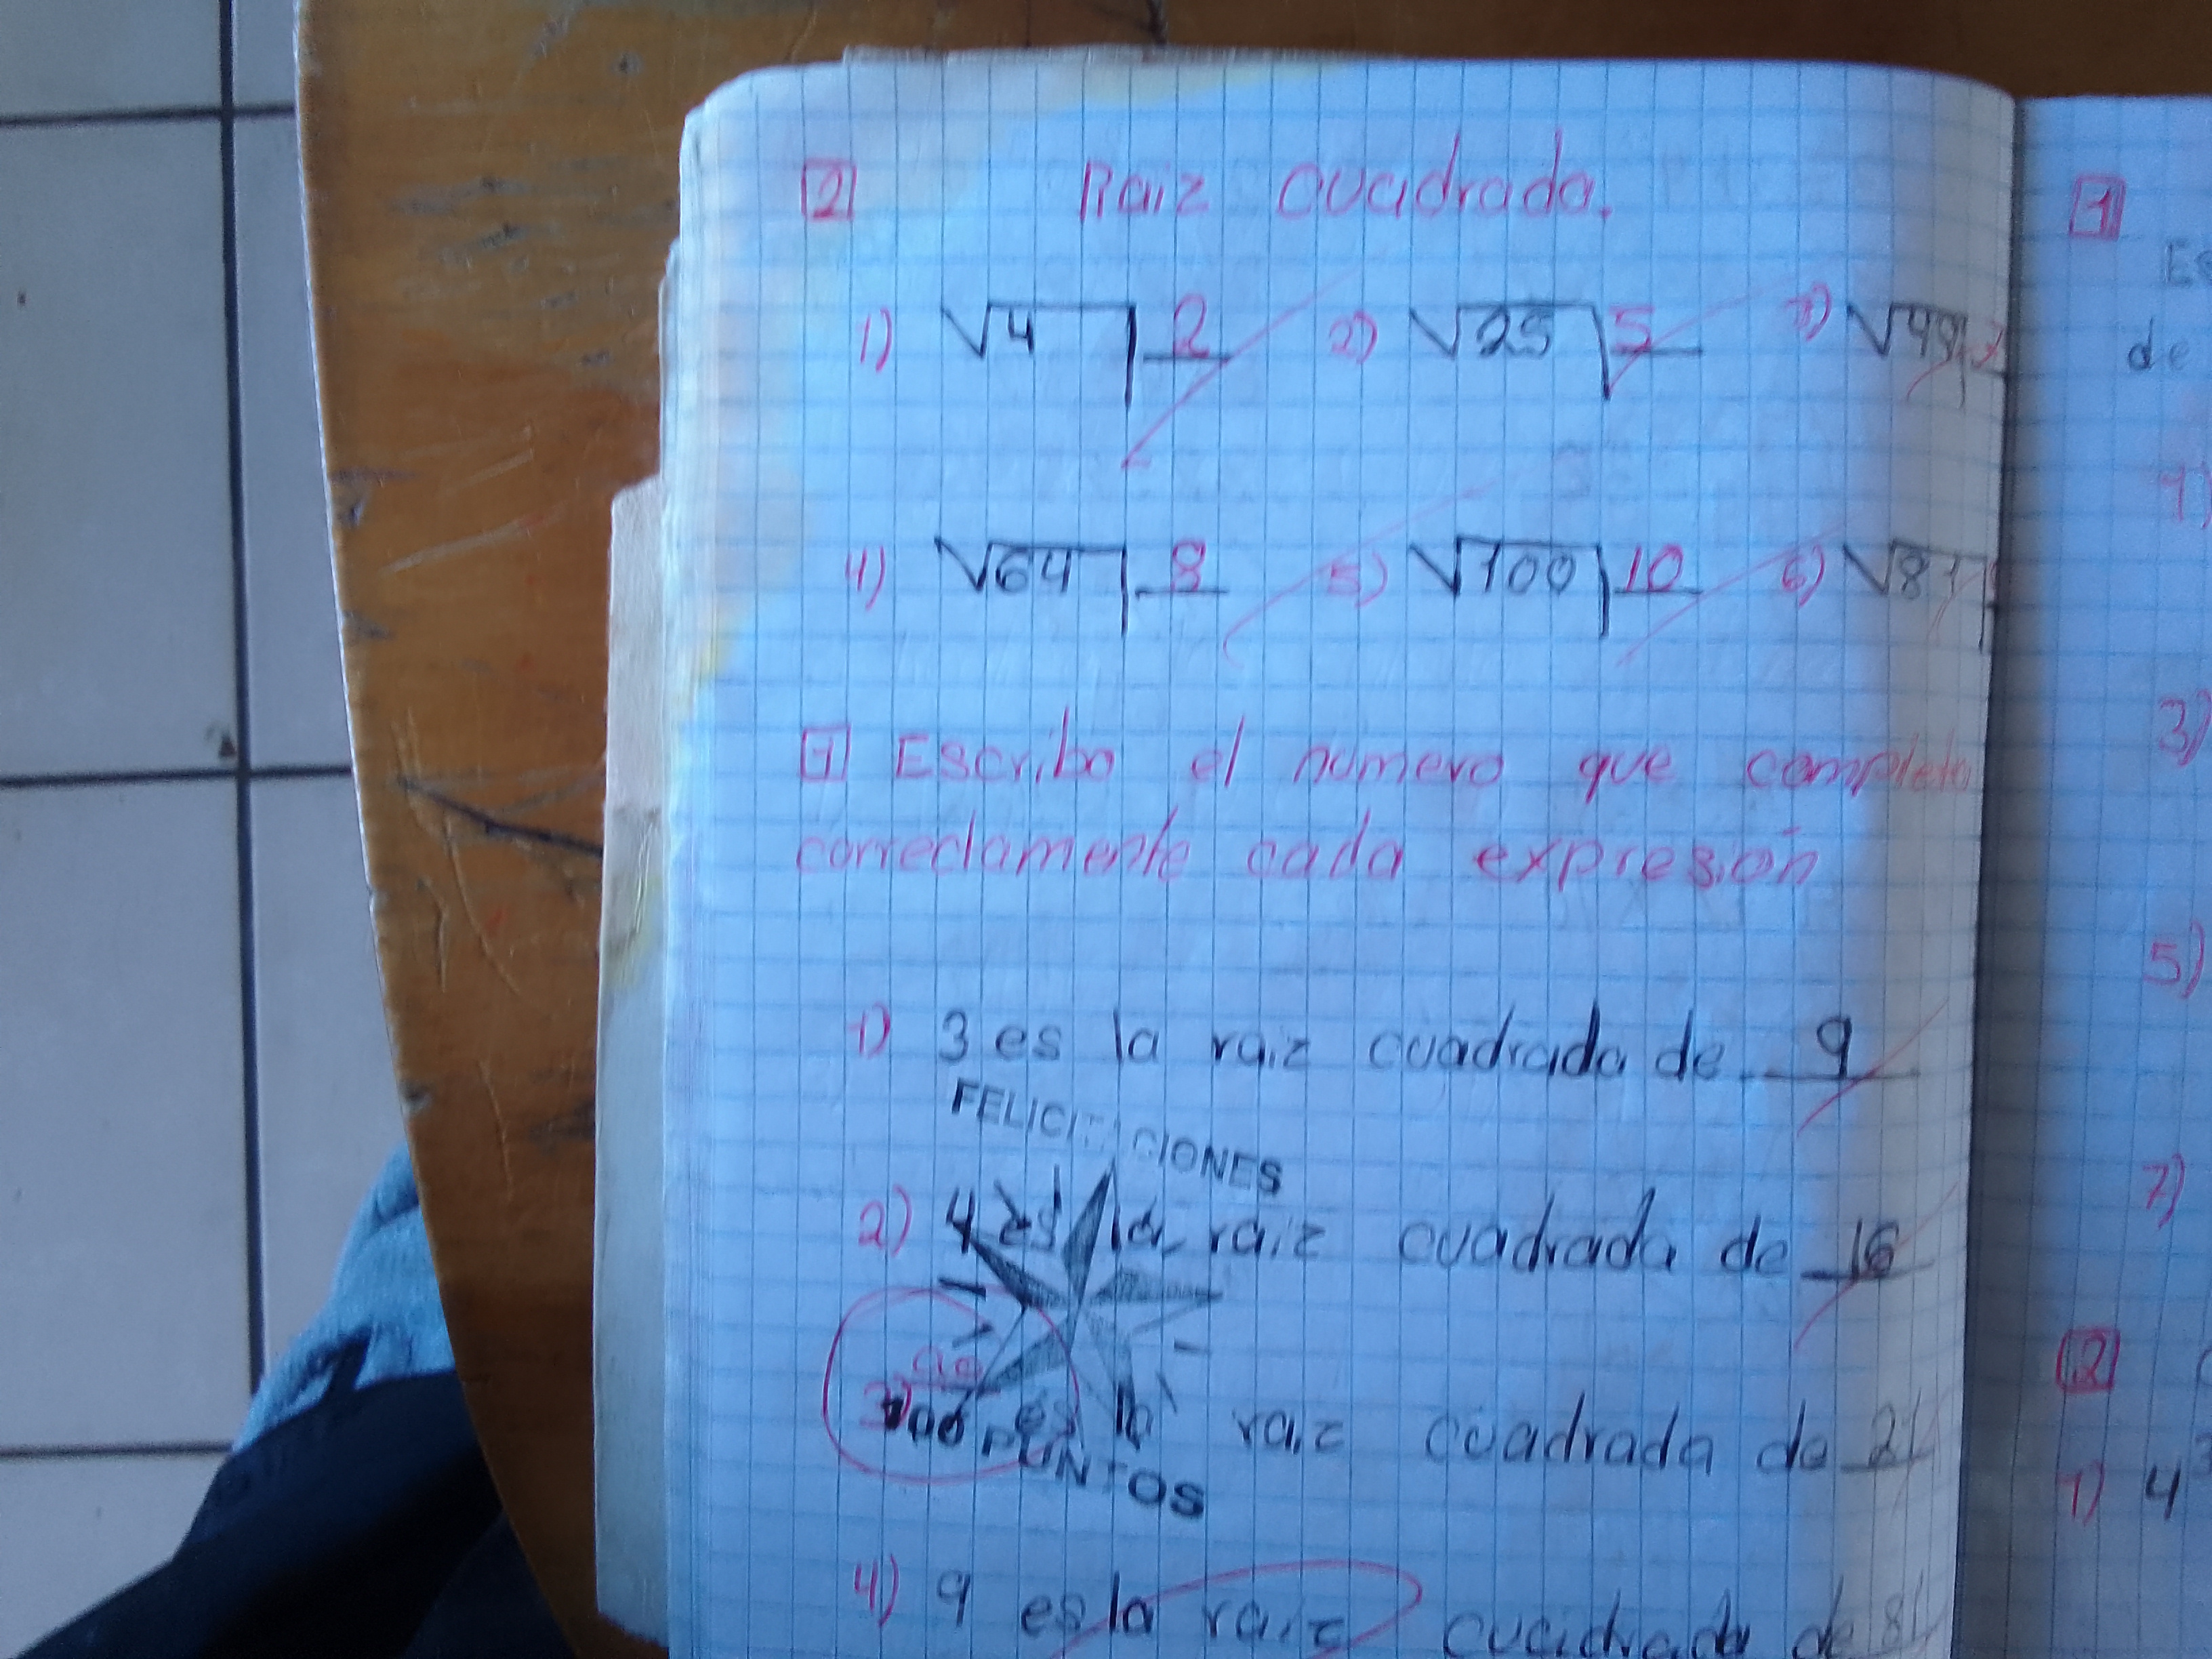 2 Raiz cuadrada.
1) √4 2 2) √25 5 3) √49
4) √64 8 5) √100 10 6) √81
1 Escribo el numero que completa
correctamente cada expresión
1) 3 es la raiz cuadrada de 9
FELICITACIONES
2) 4 es la raiz cuadrada de 16
3) es la raiz cuadrada de
100 PUNTOS
4) 9 es la raiz cuadrada de 81
1
Es
de
1)
3)
5)
7)
2
1) 4